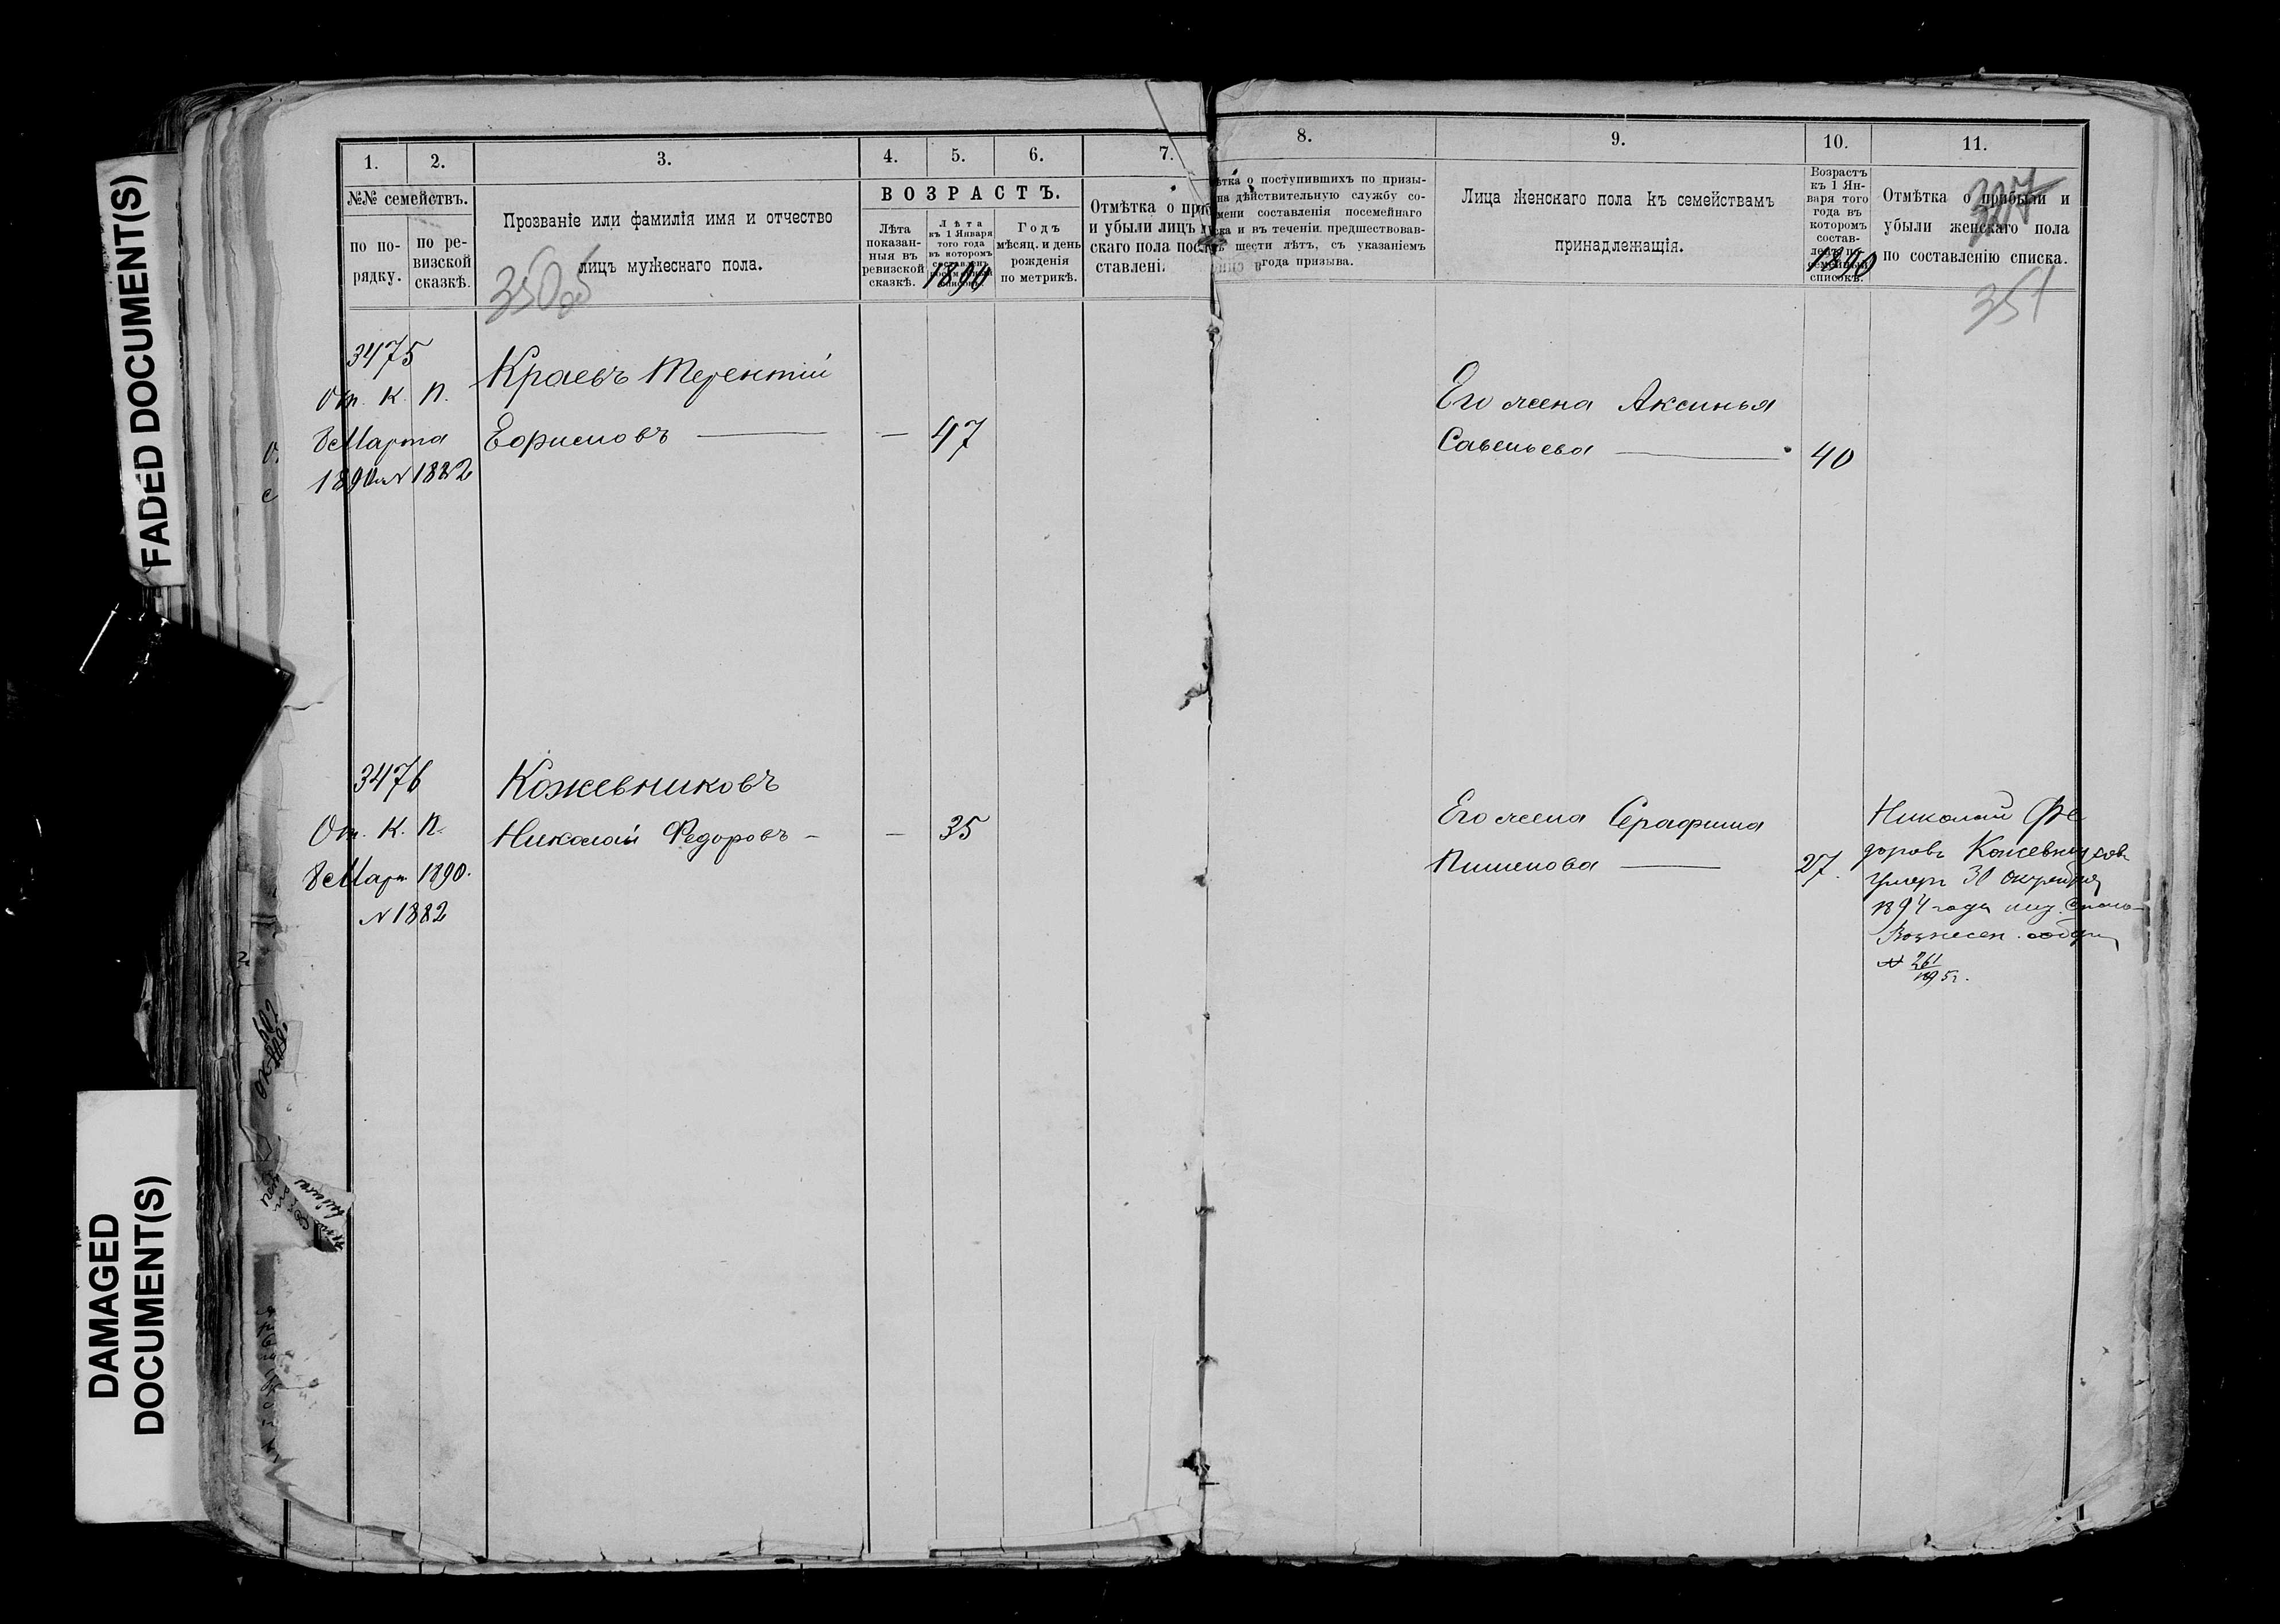 FADED DOCUMENT(S)
DAMAGED
DOCUMENT(S)
1.
2.
3.
4.
5.
6.
7.
№№ семействъ.
по по-
рядку.
по ре-
визской
сказкѣ.
Прозваніе или фамилія имя и отчество
лицъ мужескаго пола.
350об
ВОЗРАСТЪ.
Лѣта
показан-
ныя въ
ревизской
сказкѣ.
Лѣта
къ 1 Января
того года
въ которомъ
составленъ
1890
Годъ
мѣсяц. и день
рожденія
по метрикѣ.
Отмѣтка о при
и убыли лицъ
скаго пола посл
ставлені.
3475
От. К. П.
8 Марта
1890 г. № 1882
Краевъ Терентій
Борисовъ —
— 47
3476
От. К. П.
8 Март 1890.
№ 1882
Кожевниковъ
Николай Федоровъ —
— 35
8.
9.
10.
11.
ѣтка о поступившихъ по призы-
на дѣйствительную службу со-
мени составленія посемейнаго
ска и въ теченіи предшествовав-
шести лѣтъ, съ указаніемъ
года призыва.
Лица женскаго пола къ семействамъ
принадлежащія.
Возрастъ
къ 1 Ян-
варя того
года въ
которомъ
состав-
ленъ по-
семейный
списокъ.
1890
Отмѣтка о прибыли и
убыли женскаго пола
по составленію списка.
307
351
Его жена Аксинья
Савельева — 40
Его жена Серафима
Пименова — 27.
Николай Фе
доровъ Кожевников
умеръ 30 октября
1894 года
Вознесен.
№ 261
1895 г.